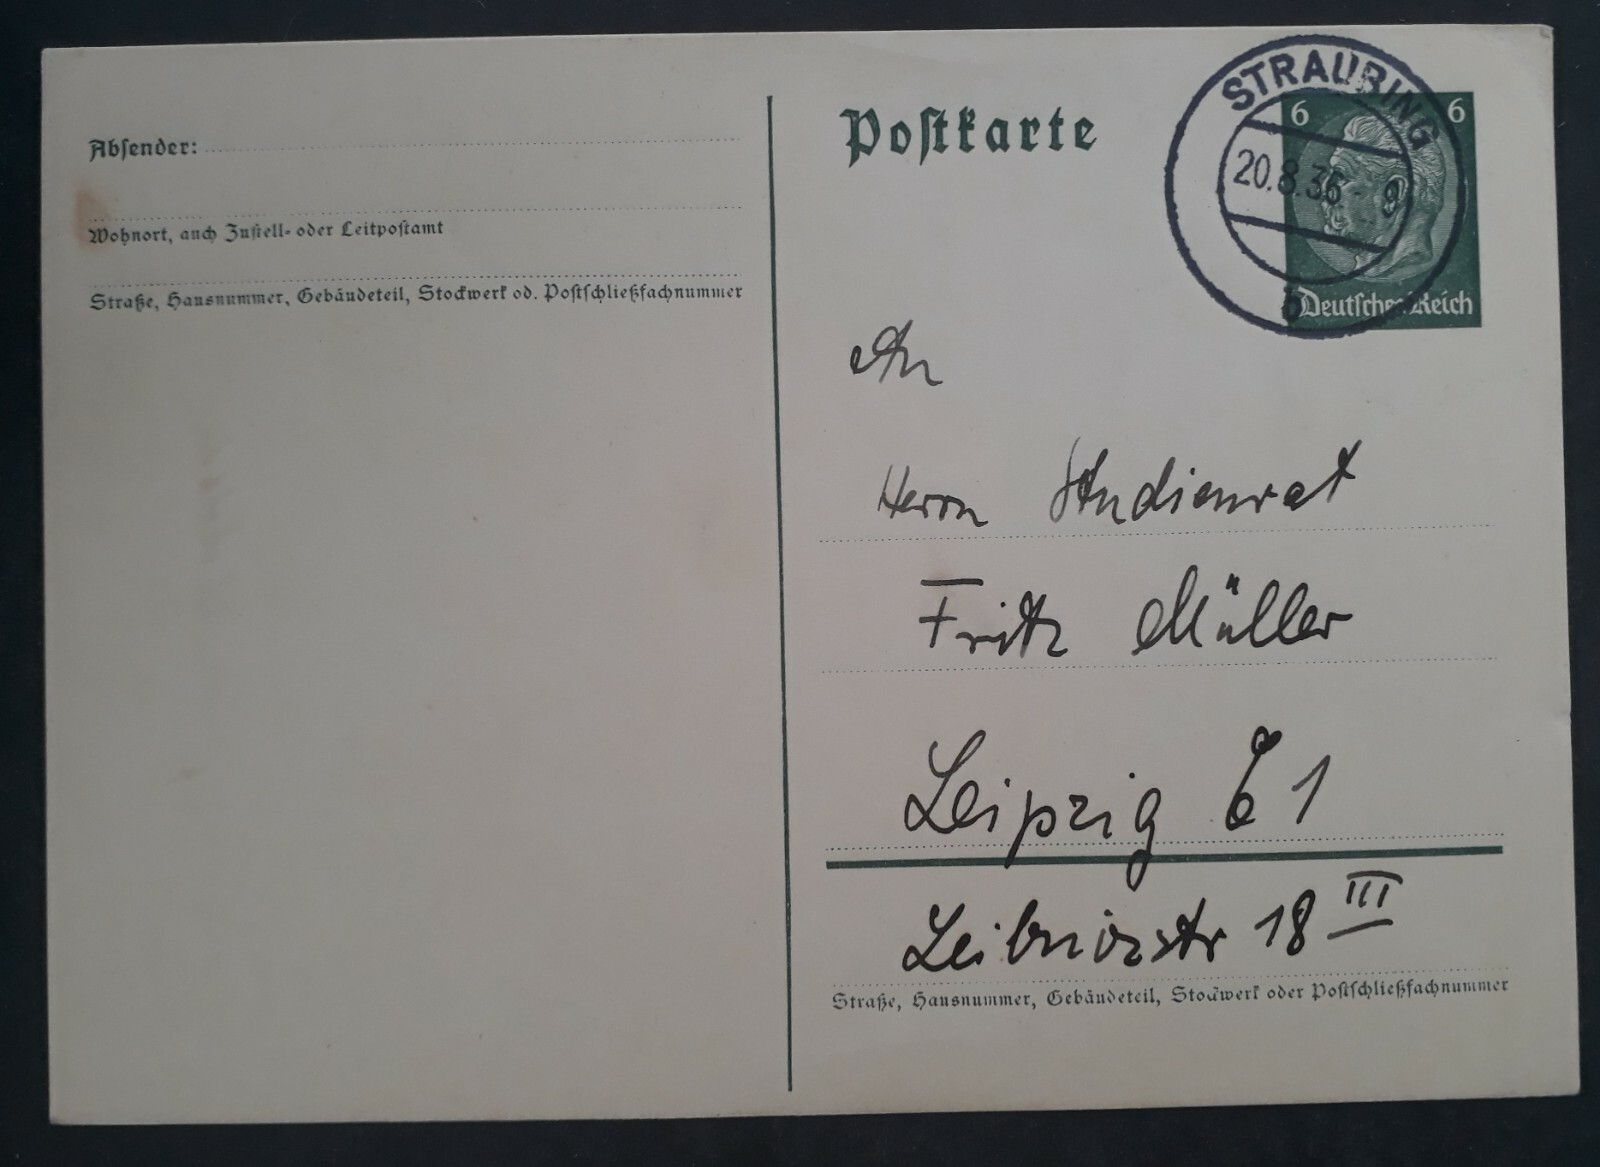 Absender:
Wohnort, auch Zustell- oder Leitpostamt
Straße, Hausnummer, Gebäudeteil, Stockwerk od. Postschließfachnummer
Postkarte
STRAUBING
20.8.36 - 9
b
6 6
Deutsches Reich
An
Herrn Studienrat
Fritz Müller
Leipzig C 1
Leibnizstr 18 III
Straße, Hausnummer, Gebäudeteil, Stockwerk oder Postschließfachnummer